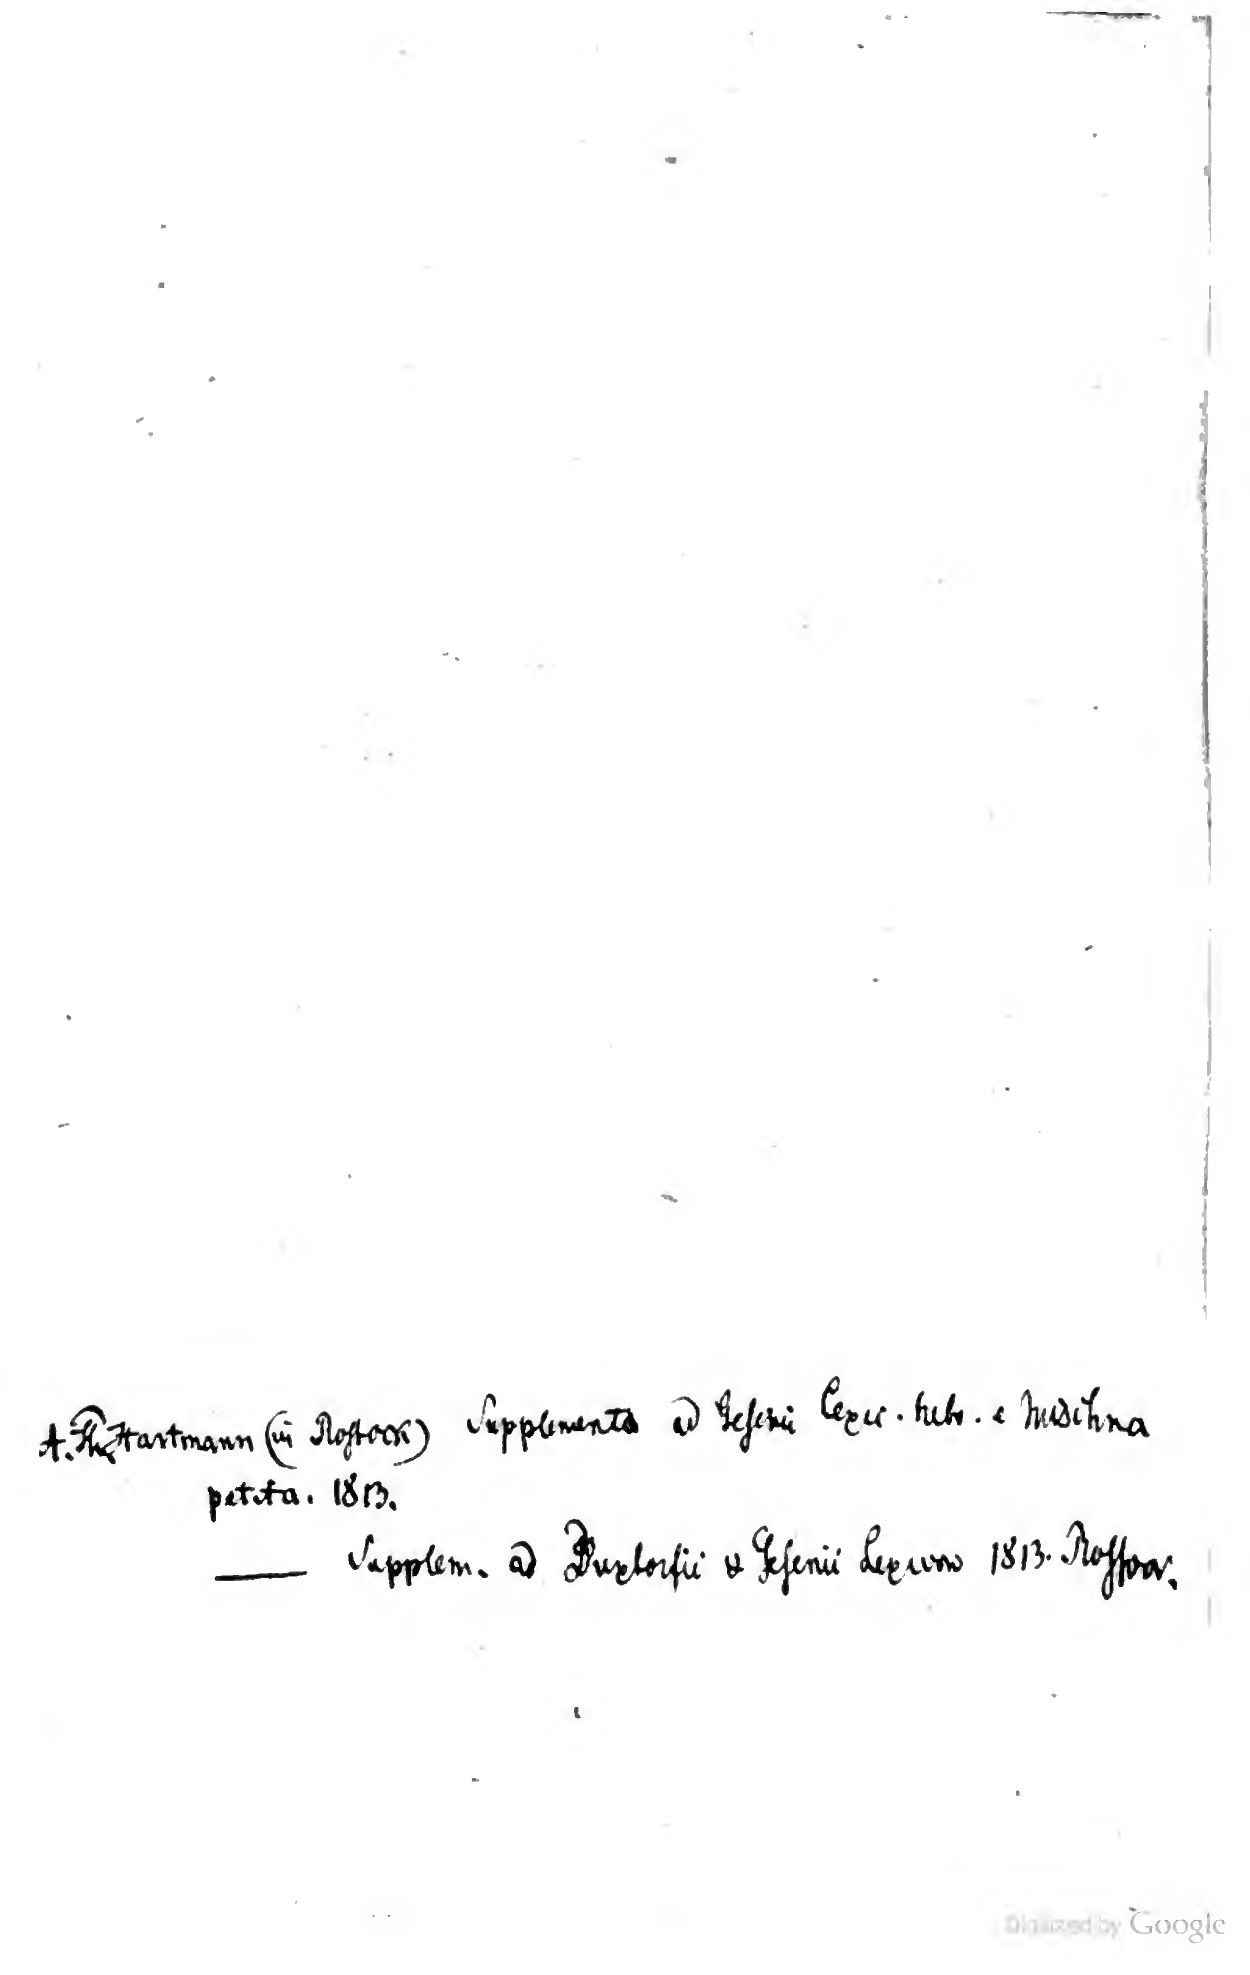 A. Th. Hartmann (in Rostock) Supplementa ad Gesenii Lexic. hebr. e Mischna
petita. 1813.
—— Supplem. ad Buxtorfii & Gesenii Lexicon 1813. Rostock.
Digitized by Google